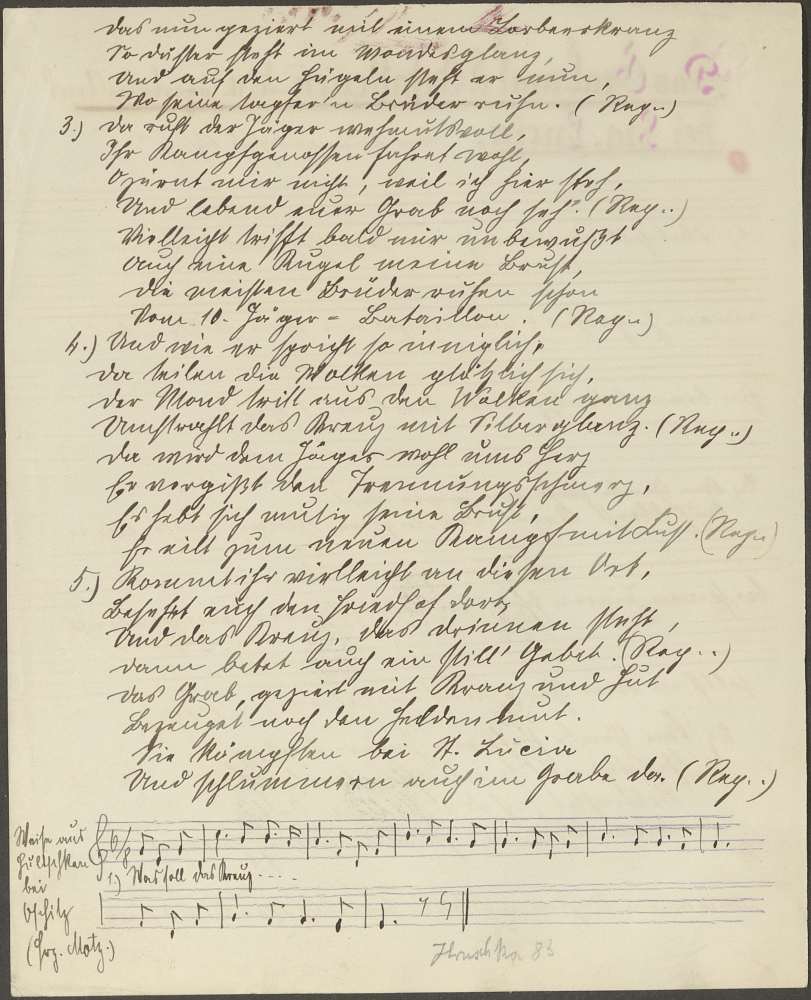 Das nun geziert mit einem Lorbeerkranz
So düster steht im Mondesglanz,
Und auf den Hügeln steht er nun,
Wo seine tapfer'n Brüder ruhn. (Rep..)
3.) Da ruft der Jäger wehmutsvoll,
Ihr Kampfgenossen fahret wohl,
O zürnt mir nicht, weil ich hier steh,
Und lebend euer Grab noch seh'. (Rep..)
Vielleicht trifft bald mir unbewußt
Auch eine Kugel meine Brust,
Die meisten Brüder ruhen schon
Vom 10. Jäger = Bataillon. (Rep..)
4.) Und wie er spricht so inniglich,
Da teilen die Wolken plötzlich sich,
Der Mond tritt aus den Wolken ganz
Umstrahlt das Kreuz mit Silberglanz. (Rep..)
Da wird dem Jäger wohl ums Herz
Er vergißt den Trennungsschmerz,
Es hebt sich mutig seine Brust,
Er eilt zum neuen Kampf mit Lust. (Rep..)
5.) Kommt ihr vielleicht an diesen Ort,
Besehet euch den Friedhof dort,
Und das Kreuz, das drinnen steht,
Dann betet auch ein still' Gebet. (Rep..)
Das Grab, geziert mit Kranz und Hut
Bezeuget noch den Heldenmut.
Sie kämpften bei St. Lucia
Und schlummern auch im Grabe da. (Rep..)
Weise aus
bei
(Hrz. Motz.)
1.) Was soll das Kreuz . . . .
Hruschka 83